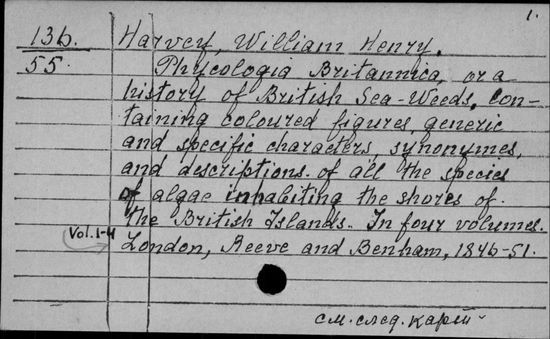 1.
136. Harvey, William Henry.
55. Phycologia Britannica, or a
history of British Sea-Weeds, con-
taining coloured figures, generic
and specific characters, synonymes,
and descriptions of all the species
of algae inhabiting the shores of
the British Islands. In four volumes.
Vol. 1-4 London, Reeve and Benham, 1846-51.
см. след. карт.